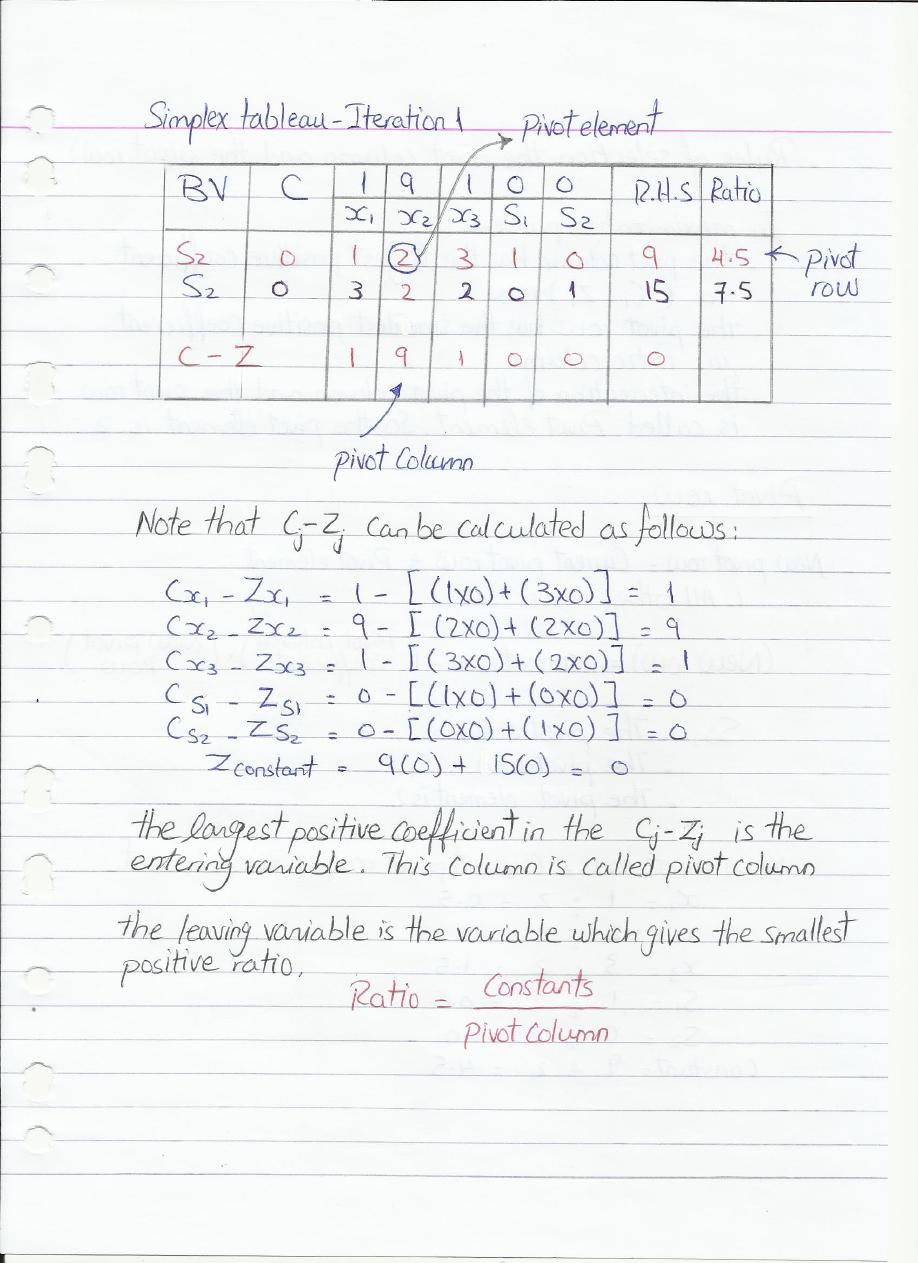 Simplex tableau - Iteration 1
Pivot element
BV C 1 9 1 0 0 R.H.S Ratio
x₁ x₂ x₃ S₁ S₂
S₂ 0 1 2 3 1 0 9 4.5 ← pivot row
S₂ 0 3 2 2 0 1 15 7.5
C - Z 1 9 1 0 0 0
pivot Column
Note that Cj - Zj can be calculated as follows:
Cx₁ - Zx₁ = 1 - [(1x0) + (3x0)] = 1
Cx₂ - Zx₂ = 9 - [(2x0) + (2x0)] = 9
Cx₃ - Zx₃ = 1 - [(3x0) + (2x0)] = 1
CS₁ - ZS₁ = 0 - [(1x0) + (0x0)] = 0
CS₂ - ZS₂ = 0 - [(0x0) + (1x0)] = 0
Zconstant = 9(0) + 15(0) = 0
the largest positive coefficient in the Cj - Zj is the
entering variable. This Column is Called pivot column
the leaving variable is the variable which gives the smallest
positive ratio.
Ratio = Constants
Pivot Column